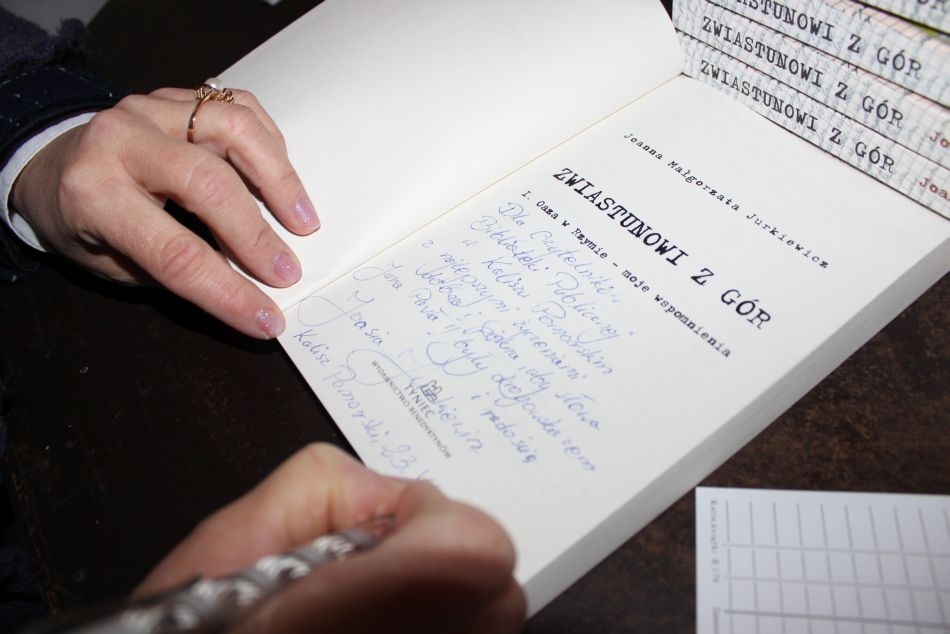 ZWIASTUNOWI Z GÓR
ZWIASTUNOWI Z GÓR
ZWIASTUNOWI Z GÓR
Joa
Joanna Małgorzata Jurkiewicz
ZWIASTUNOWI Z GÓR
I. Oaza w Rzymie - moje wspomnienia
Dla Czytelników
Biblioteki Publicznej
w Kaliszu Pomorskim
z najlepszymi życzeniami
słowa
Jana Pawła II były drogowskazem
i radością
Joasia Jurkiewicz
TYNIEC
WYDAWNICTWO BENEDYKTYNÓW
Kalisz Pomorski, 23.